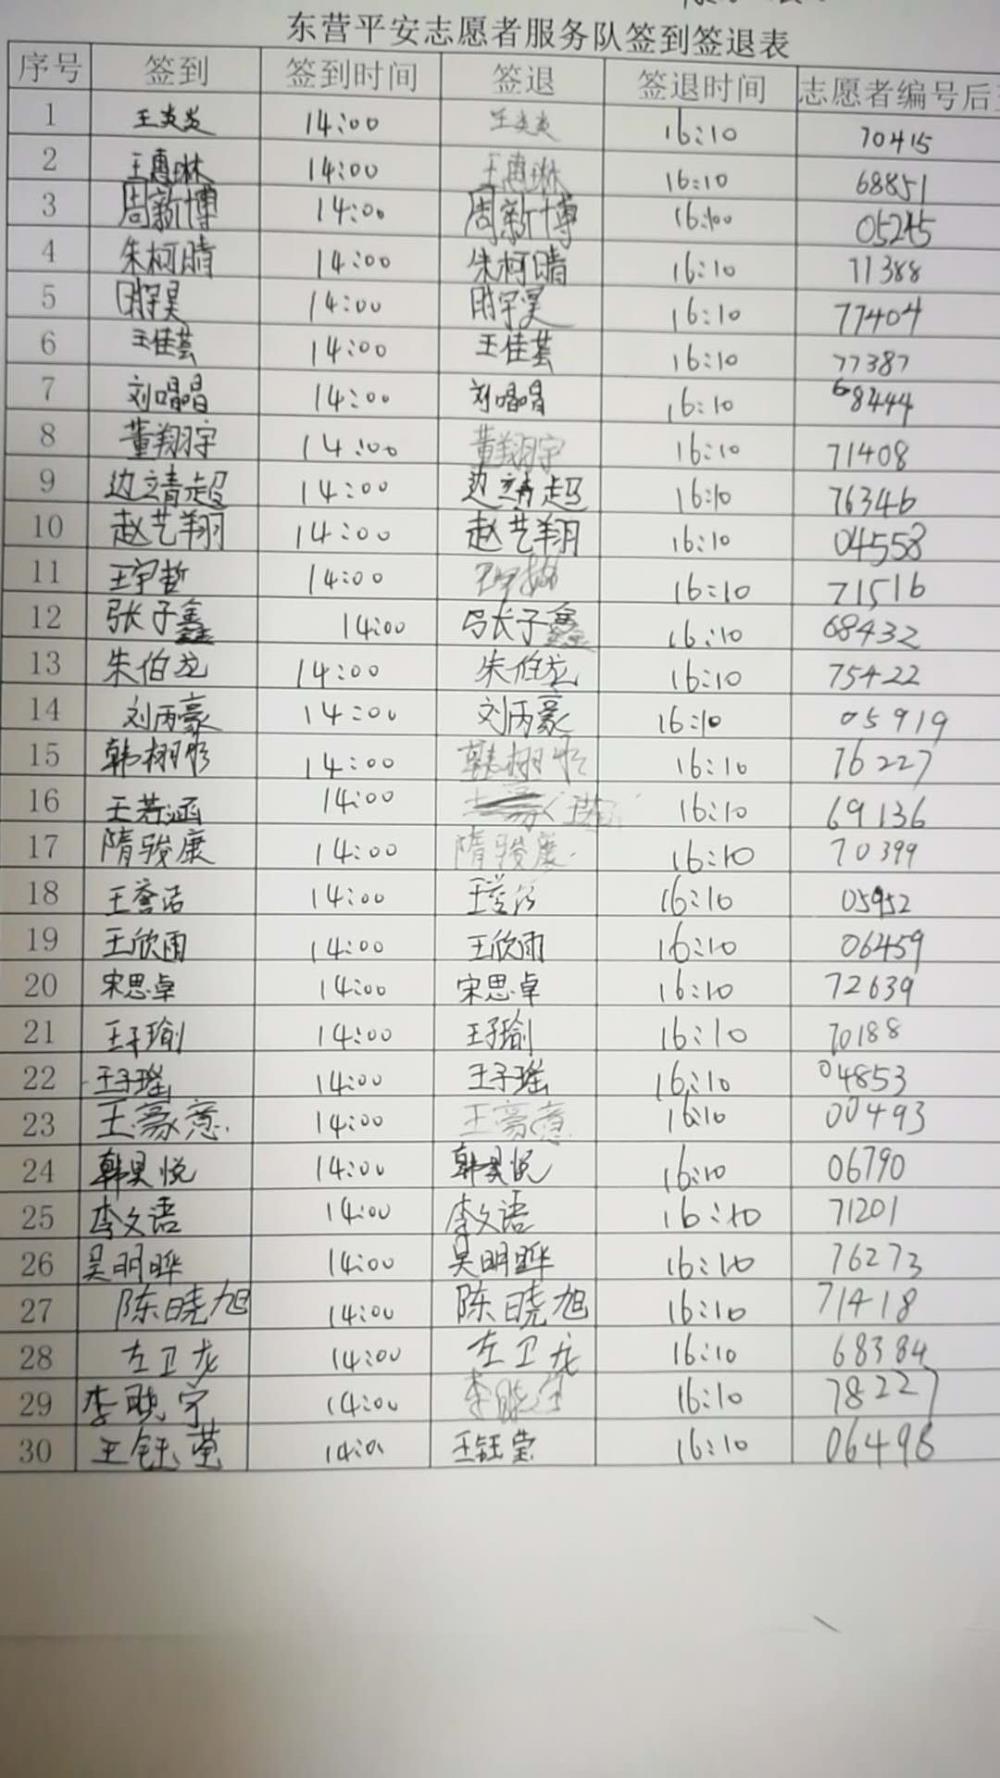 东营平安志愿者服务队签到签退表
序号 签到 签到时间 签退 签退时间 志愿者编号后
1 王炎炎 14:00 王炎炎 16:10 70415
2 王惠琳 14:00 王惠琳 16:10 68851
3 周新博 14:00 周新博 16:00 05245
4 朱柯晴 14:00 朱柯晴 16:10 71388
5 14:00 16:10 77404
6 王佳芸 14:00 王佳芸 16:10 77387
7 刘唱昌 14:00 刘唱昌 16:10 68444
8 董翔宇 14:00 董翔宇 16:10 71408
9 边靖超 14:00 边靖超 16:10 76346
10 赵艺翔 14:00 赵艺翔 16:10 04558
11 王宇哲 14:00 16:10 71516
12 张子鑫 14:00 张子鑫 16:10 68432
13 朱伯龙 14:00 朱伯龙 16:10 75422
14 刘丙豪 14:00 刘丙豪 16:10 05919
15 14:00 16:10 76227
16 王若涵 14:00 16:10 69136
17 隋骏康 14:00 隋骏康 16:10 70399
18 14:00 16:10 05952
19 王欣雨 14:00 王欣雨 16:10 06459
20 宋思卓 14:00 宋思卓 16:10 72639
21 王子瑜 14:00 王子瑜 16:10 70188
22 王子瑶 14:00 王子瑶 16:10 04853
23 王豪意 14:00 王豪意 16:10 00493
24 韩昊悦 14:00 韩昊悦 16:10 06790
25 李文语 14:00 李文语 16:10 71201
26 吴明晔 14:00 吴明晔 16:10 76273
27 陈晓旭 14:00 陈晓旭 16:10 71418
28 左卫龙 14:00 左卫龙 16:10 68384
29 李晓宇 14:00 16:10 78227
30 王钰莹 14:00 王钰莹 16:10 06498